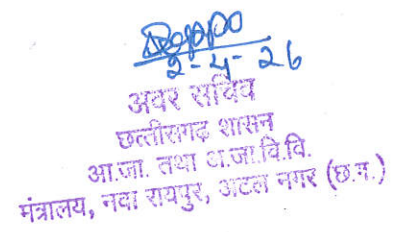 2-4-26
अवर सचिव
छत्तीसगढ़ शासन
आ.जा. तथा अ.जा.वि.वि.
मंत्रालय, नवा रायपुर, अटल नगर (छ.ग.)